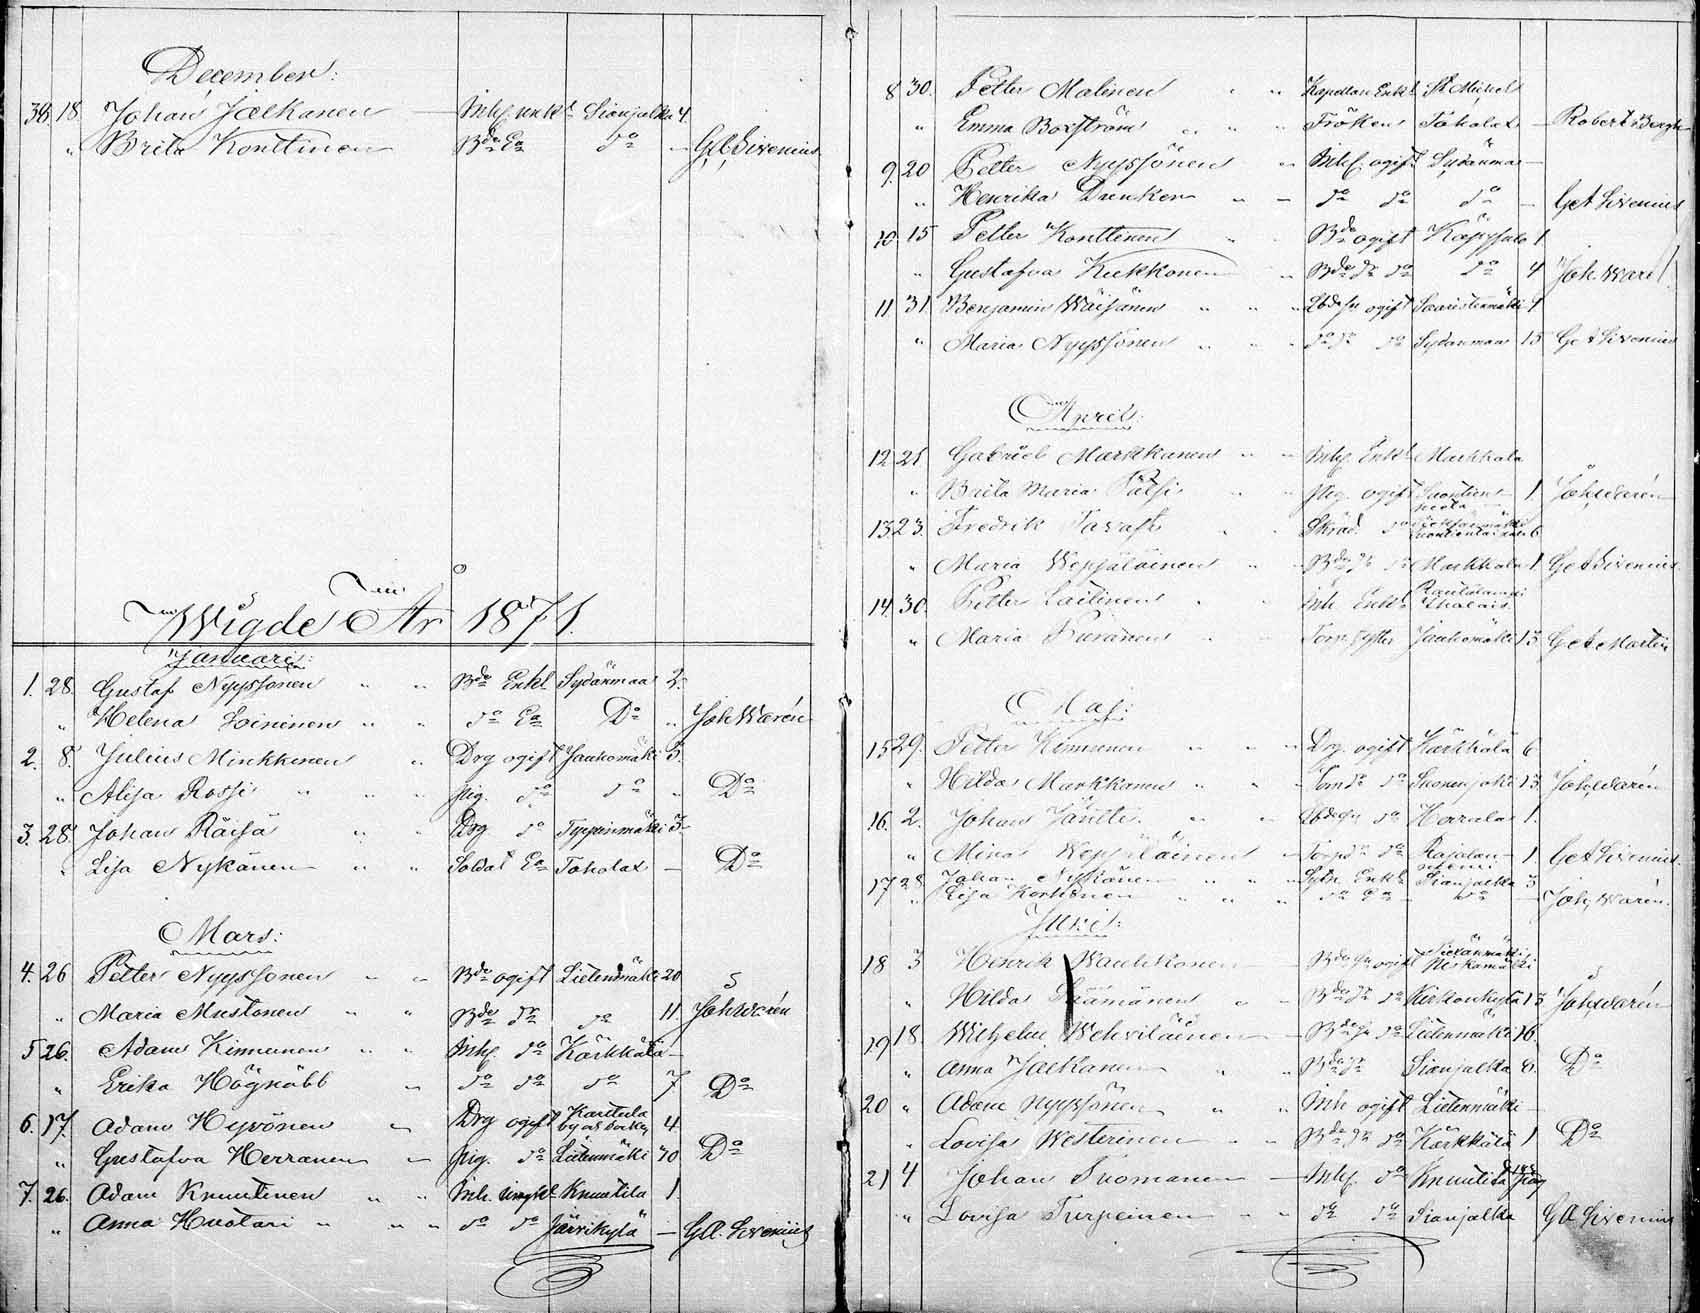 December:
38. 18. Johan Jalkanen — Inh. unkl Sianjalka 4.
" Brita Konttinen Bde Ea do — G.A. Sirenius
Wigde År 1871.
Januari:
1. 28. Gustaf Nyyssönen " " Bde Enkl Sydänmaa 2.
" Helena Loininen " " do Ea Do " Joh Warén
2. 8. Julius Minkkinen " Drg ogift Jauhomäki 3.
" Alisa Rossi " " " pig. do do " Do
3. 28. Johan Räisä " " Drg do Tyyrinmäki 3
" Lisa Nykänen " " Soldat Ea Toholax — Do
Mars:
4. 26 Petter Nyyssönen " " Bde ogift Lietenmäki 20
" Maria Mustonen " " Bde dr do 11. Joh Warén
5 26. Adam Kinnunen " " Inh. do Kärkkälä —
" Erika Högnäbb " do do do 7 Do
6. 17. Adam Hyvönen " Drg ogift Karttula by o. socken 4.
" Gustafva Herranen " pig. do Lietenmäki 70 Do
7. 26. Adam Knuutinen " " Inh. ungkl Knuutila 1.
" Anna Huotari " " " do do Järvikylä — G.A. Sirenius
8 30. Petter Malinen " " Kapellan Enkl. St Michel
" Emma Boxström " " " Fröken Toholax — Robert Bergh
9. 20 Petter Nyyssönen " Inh. ogift Sydänmaa —
" Henrika Dunker " — do do do — G A Sirenius
10. 15 Petter Konttinen " " Bde ogift Käpysalo 1
" Gustafva Kukkonen " Bde dr do do 4 Joh. Warén
11 31. Benjamin Wäisänen " " " ogift 1
" Maria Nyyssönen " " " do dr do Sydänmaa 15 G A Sirenius
April:
12 25 Gabriel Markkanen " " Inh. Enkl Markkala
" Brita Maria " " pig. ogift 1. Joh. Warén
13 23. Fredrik Tavast " " Skräd. do 6
" Maria Wepsäläinen " " Bde dr do Markkala 1 G A Sirenius
14. 30. Petter Laitinen " " Inh Enkl Rautalampi
" Maria " " Torp. dotter Jauhomäki 13 G A Martin
Maj:
15 29. Petter Kinnunen " " " Drg. ogift Kärkkälä 6
" Hilda Markkanen " " " Torp dr do Suonenjoki 13 Joh. Warén
16. 2. Johan Jäntti " " do Herrala 1.
" Mina Wepsäläinen " Torp dr do Rajalan- niemi 1 G A Sirenius
17 28 Johan Nykänen " " " Enkl Sianjalka 3
" Lisa Korhonen " " " do Ea do — Joh. Warén.
Juni:
18 3 Henrik Wauhkonen — Bde sn ogift Niskamäki
" Hilda " — Bde dr do Kirkonkylä 13 Joh. Warén
19 18. Wilhelm Wehviläinen — Bde sn do Lietenmäki 16.
" Anna Jalkanen " " Bde dr Sianjalka 8. Do
20 " Adam Nyyssönen " " Inh ogift Lietenmäki —
" Lovisa Westerinen " " Bde dr do Kärkkälä 1 Do
21 4 Johan Tuomanen — Inh. do Knuutila
" Lovisa Turpeinen " " do do Sianjalka G A Sirenius